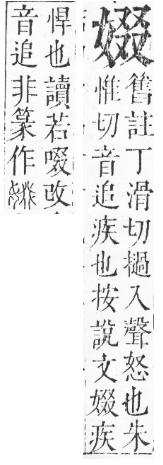 娺
舊註丁滑切撾入聲怒也朱
惟切音追疾也按說文娺疾
悍也讀若啜改
音追非篆作